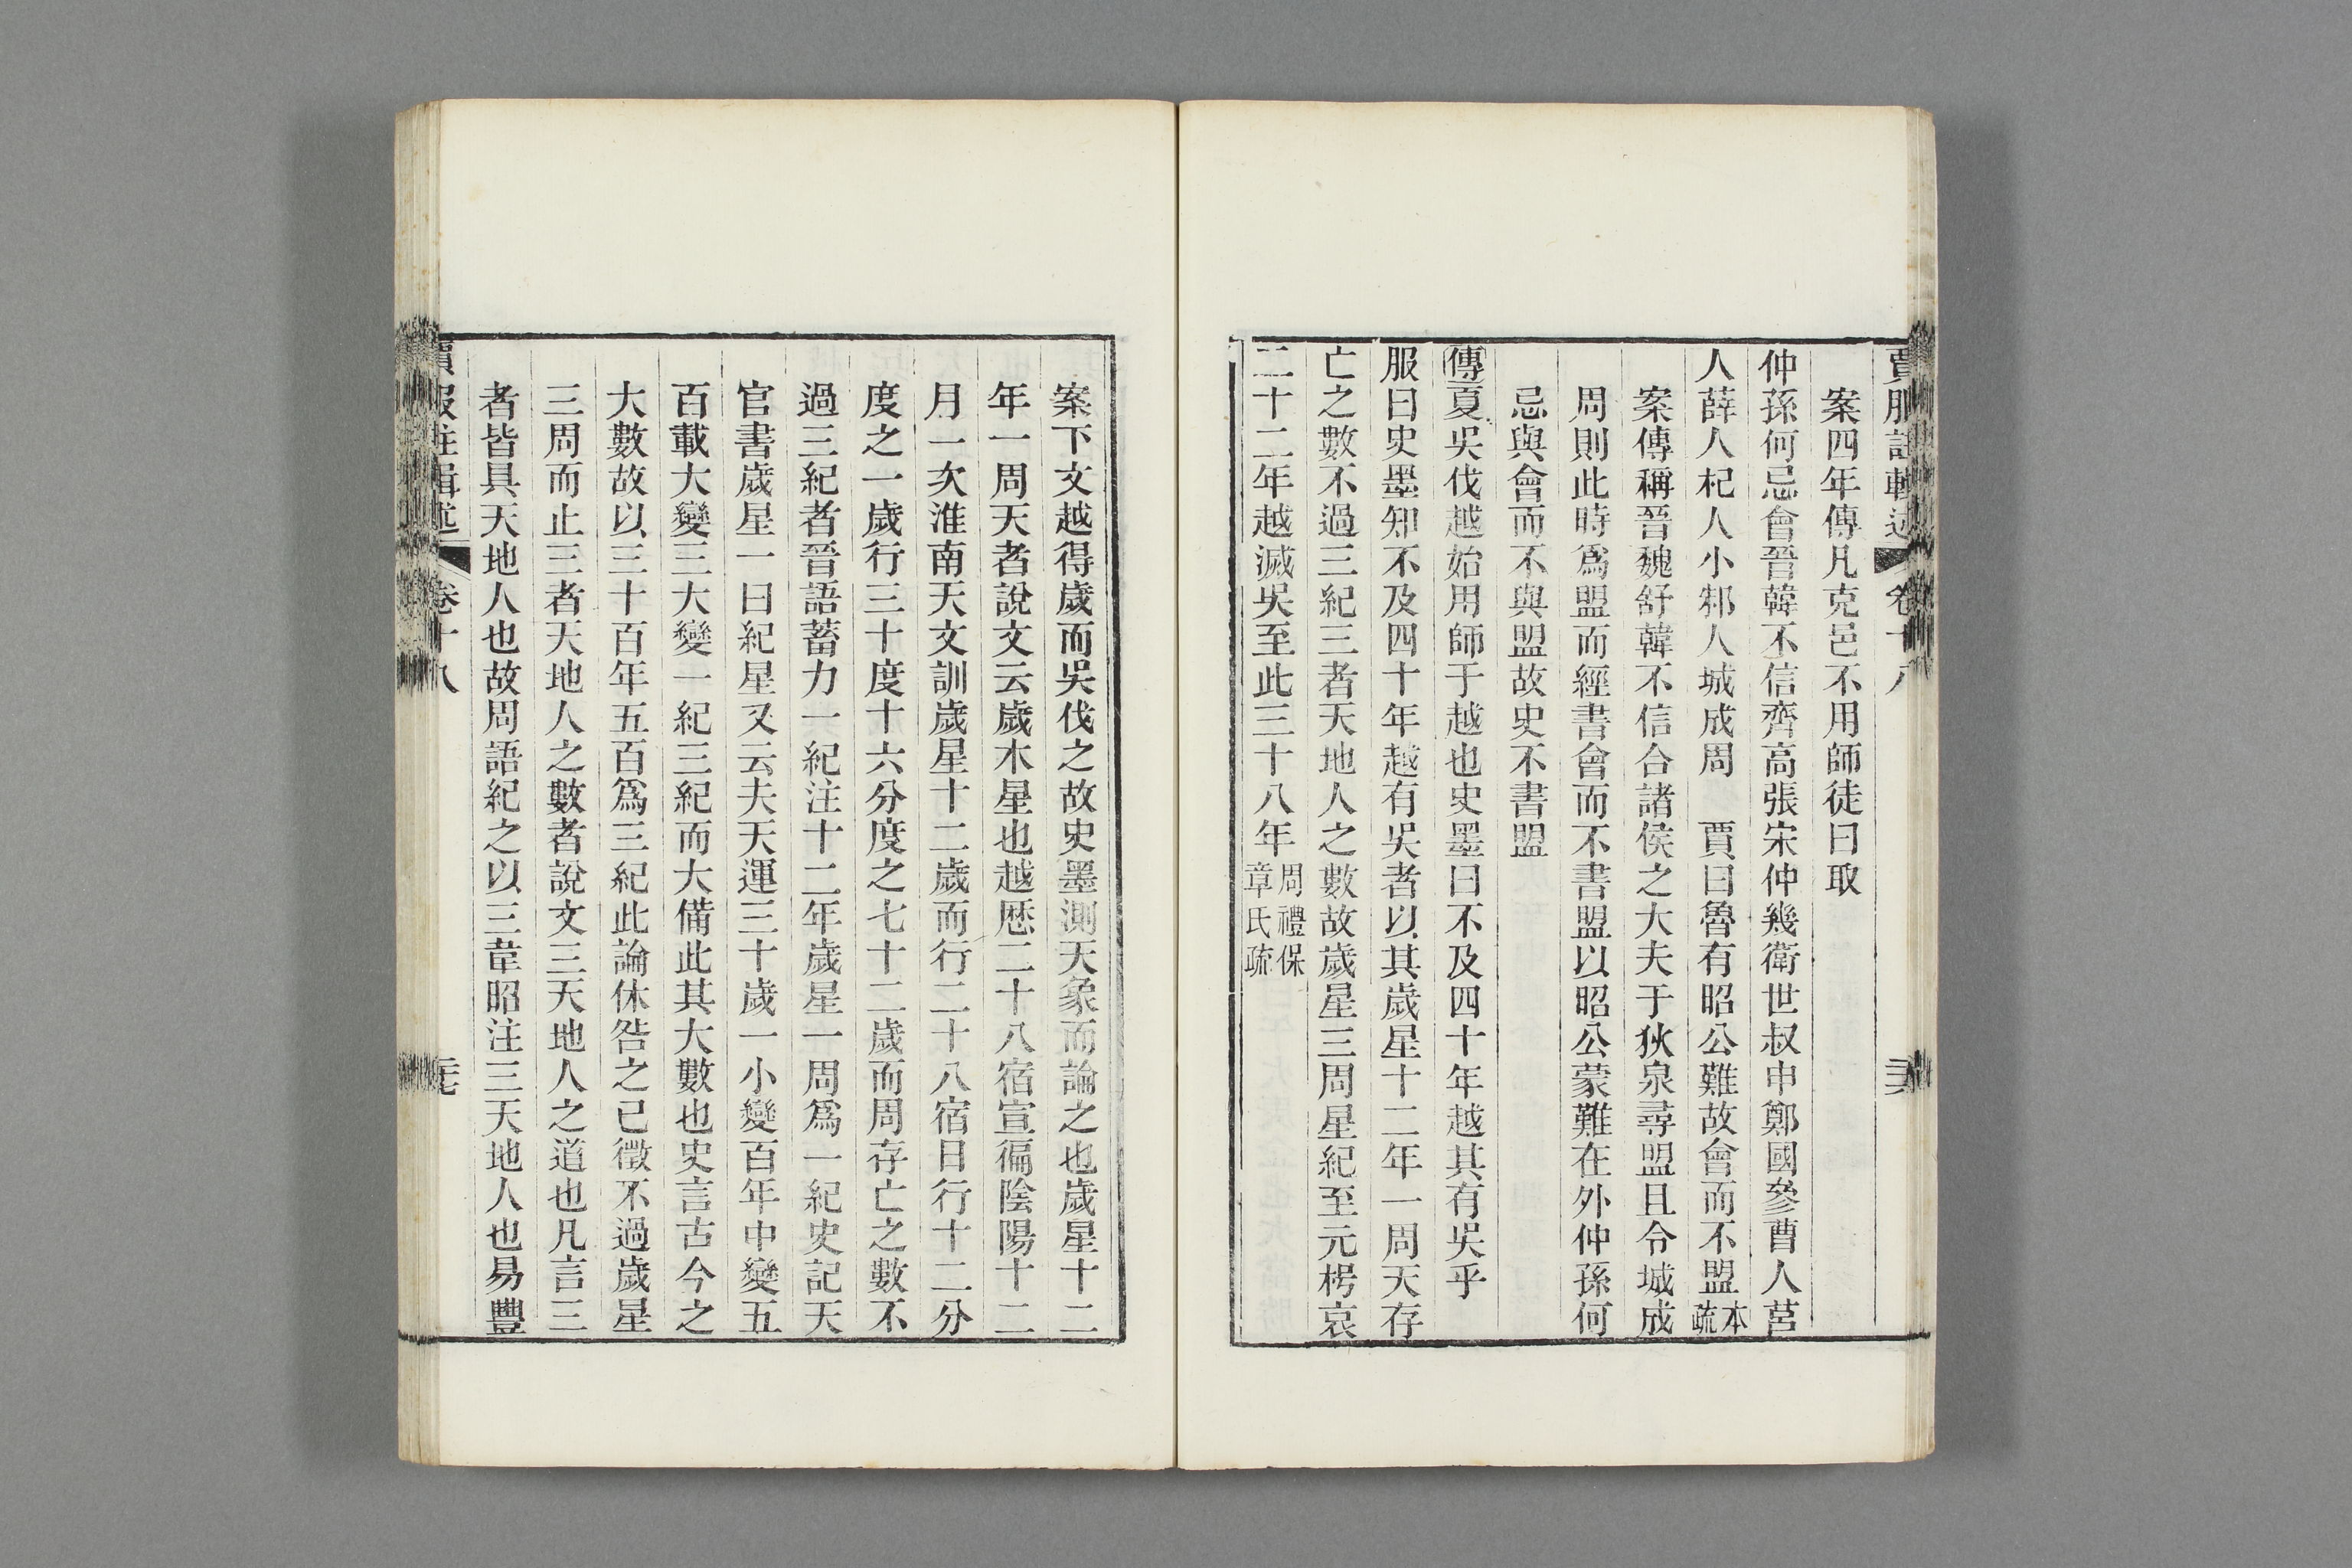 賈服註輯述 卷十八
案四年傳凡克邑不用師徒曰取
仲孫何忌會晉韓不信齊高張宋仲幾衛世叔申鄭國參曹人莒
人薛人杞人小邾人城成周　賈曰魯有昭公難故會而不盟本疏
案傳稱晉魏舒韓不信合諸侯之大夫于狄泉尋盟且令城成
周則此時爲盟而經書會而不書盟以昭公蒙難在外仲孫何
忌與會而不與盟故史不書盟
傳夏吳伐越始用師于越也史墨曰不及四十年越其有吳乎
服曰史墨知不及四十年越有吳者以其歲星十二年一周天存
亡之數不過三紀三者天地人之數故歲星三周星紀至元枵哀
二十二年越滅吳至此三十八年周禮保章氏疏
案下文越得歲而吳伐之故史墨測天象而論之也歲星十二
年一周天者說文云歲木星也越歷二十八宿宣徧陰陽十二
月一次淮南天文訓歲星十二歲而行二十八宿日行十二分
度之一歲行三十度十六分度之七十二歲而周存亡之數不
過三紀者晉語蓄力一紀注十二年歲星一周爲一紀史記天
官書歲星一曰紀星又云夫天運三十歲一小變百年中變五
百載大變三大變一紀三紀而大備此其大數也史言古今之
大數故以三十百年五百爲三紀此論休咎之已徵不過歲星
三周而止三者天地人之數者說文三天地人之道也凡言三
者皆具天地人也故周語紀之以三韋昭注三天地人也易豐
賈服註輯述 卷十八